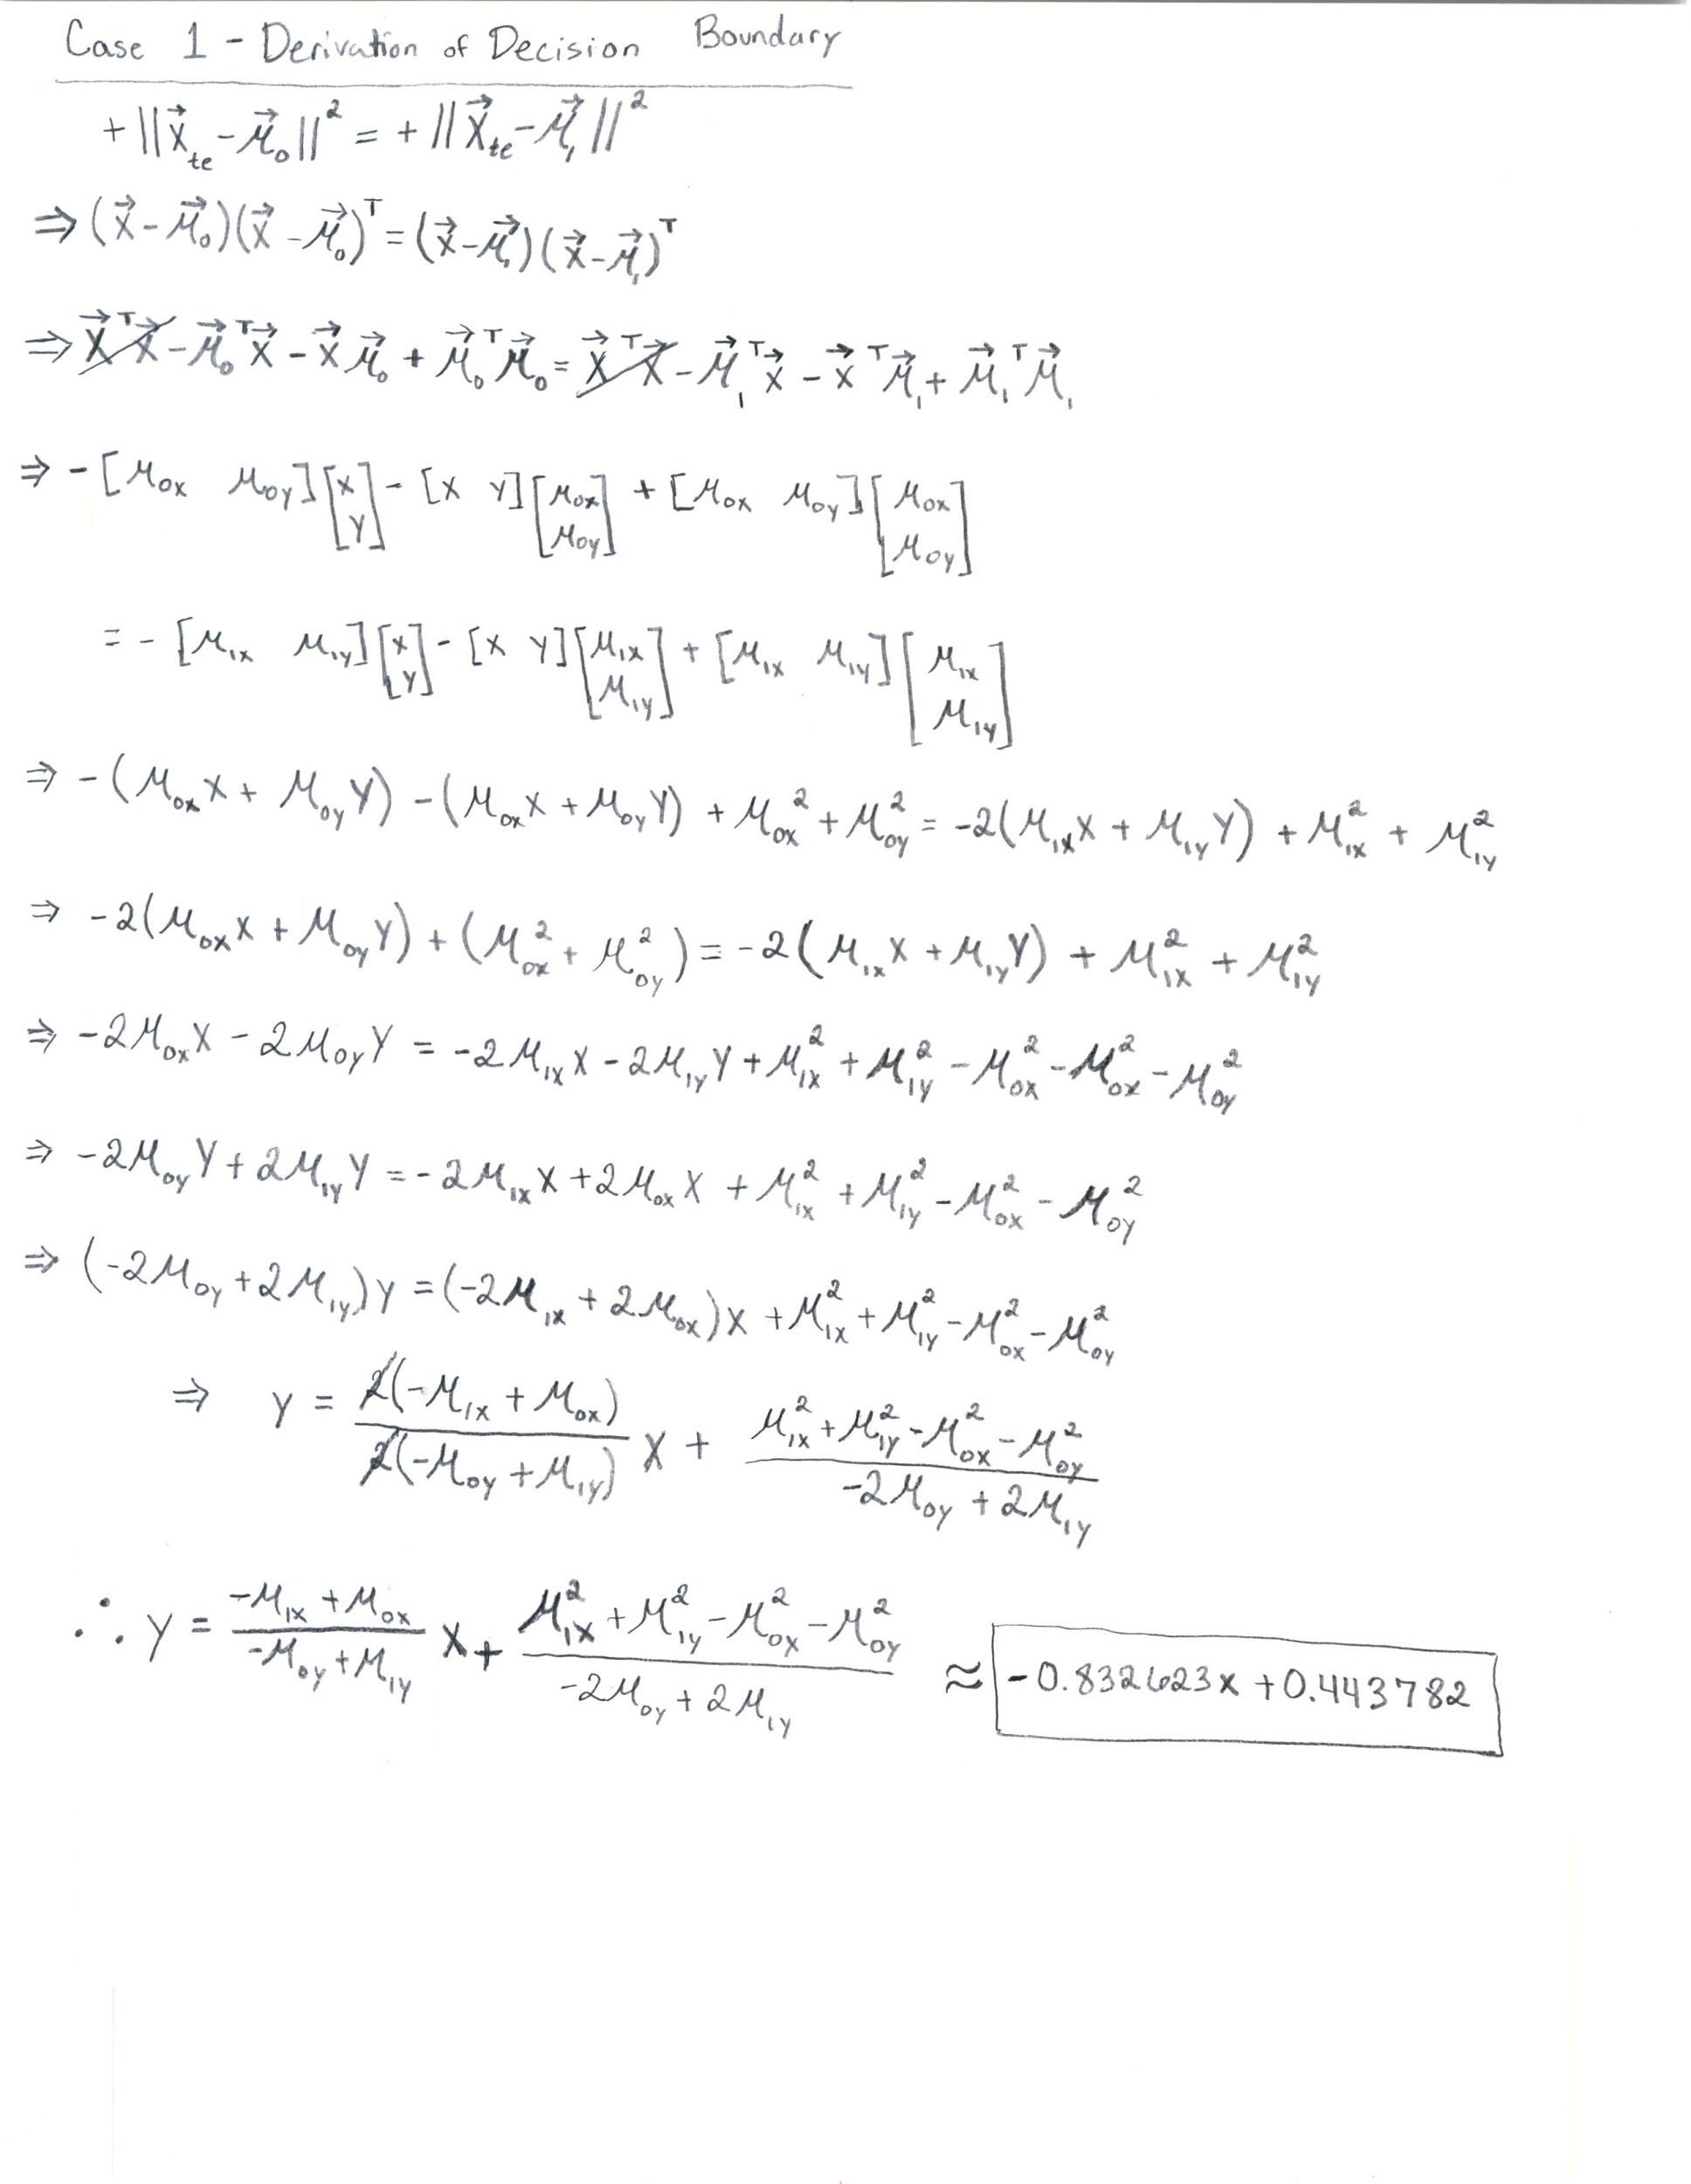 Case 1 - Derivation of Decision Boundary
+||x⃗_te - μ⃗_0||² = +||x⃗_te - μ⃗_1||²
⇒ (x⃗ - μ⃗_0)(x⃗ - μ⃗_0)^T = (x⃗ - μ⃗_1)(x⃗ - μ⃗_1)^T
⇒ x⃗^T x⃗ - μ⃗_0^T x⃗ - x⃗ μ⃗_0 + μ⃗_0^T μ⃗_0 = x⃗^T x⃗ - μ⃗_1^T x⃗ - x⃗^T μ⃗_1 + μ⃗_1^T μ⃗_1
⇒ -[μ_0x μ_0y][x y] - [x y][μ_0x μ_0y] + [μ_0x μ_0y][μ_0x μ_0y]
= -[μ_1x μ_1y][x y] - [x y][μ_1x μ_1y] + [μ_1x μ_1y][μ_1x μ_1y]
⇒ -(μ_0x x + μ_0y y) - (μ_0x x + μ_0y y) + μ_0x² + μ_0y² = -2(μ_1x x + μ_1y y) + μ_1x² + μ_1y²
⇒ -2(μ_0x x + μ_0y y) + (μ_0x² + μ_0y²) = -2(μ_1x x + μ_1y y) + μ_1x² + μ_1y²
⇒ -2μ_0x x - 2μ_0y y = -2μ_1x x - 2μ_1y y + μ_1x² + μ_1y² - μ_0x² - μ_0x² - μ_0y²
⇒ -2μ_0y y + 2μ_1y y = -2μ_1x x + 2μ_0x x + μ_1x² + μ_1y² - μ_0x² - μ_0y²
⇒ (-2μ_0y + 2μ_1y)y = (-2μ_1x + 2μ_0x)x + μ_1x² + μ_1y² - μ_0x² - μ_0y²
⇒ y = 2(-μ_1x + μ_0x) / 2(-μ_0y + μ_1y) x + (μ_1x² + μ_1y² - μ_0x² - μ_0y²) / (-2μ_0y + 2μ_1y)
∴ y = (-μ_1x + μ_0x) / (-μ_0y + μ_1y) x + (μ_1x² + μ_1y² - μ_0x² - μ_0y²) / (-2μ_0y + 2μ_1y) ≈ -0.832623x + 0.443782